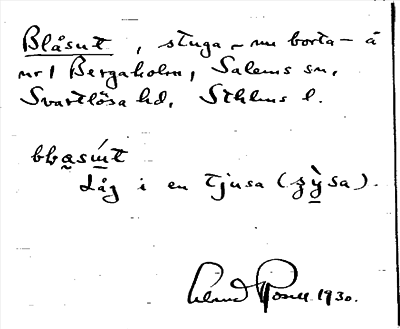 Blåsut, stuga – nu borta – å
nr 1 Bergaholm, Salems sn,
Svartlösa hd, Sthlms l.
Låg i en tjusa (
1930.